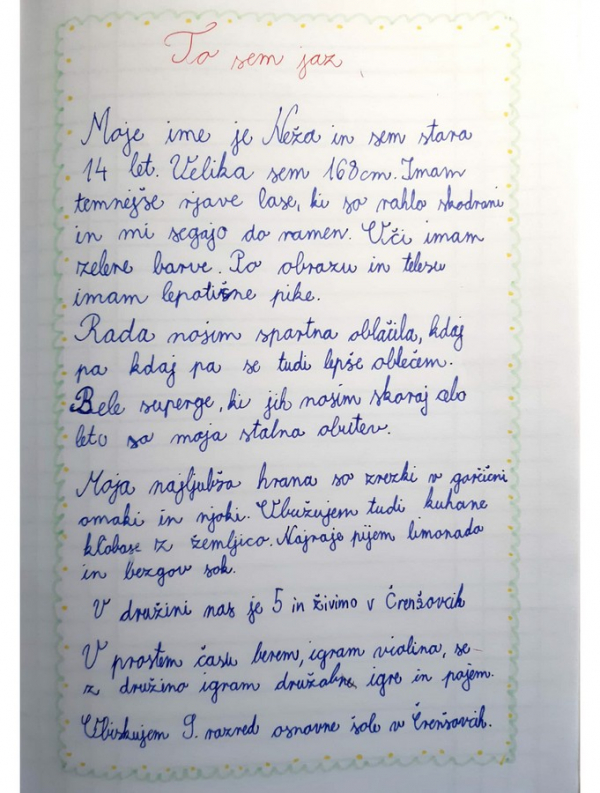 To sem jaz
Moje ime je Neža in sem stara
14 let. Velika sem 168cm. Imam
temnejše rjave lase, ki so rahlo skodrani
in mi segajo do ramen. Oči imam
zelene barve. Po obrazu in telesu
imam lepotišne pike.
Rada nosim športna oblačila, kdaj
pa kdaj pa se tudi lepše oblečem.
Bele superge, ki jih nosim skoraj celo
leto so moja stalna obutev.
Moja najljubša hrana so zrezki v gorčični
omaki in njoki. Obožujem tudi kuhane
klobase z žemljico. Najraje pijem limonado
in bezgov sok.
V družini nas je 5 in živimo v Črenšovcih
V prostem času berem, igram violino, se
z družino igram družabne igre in pojem.
Obiskujem 9. razred osnovne šole v Črenšovcih.